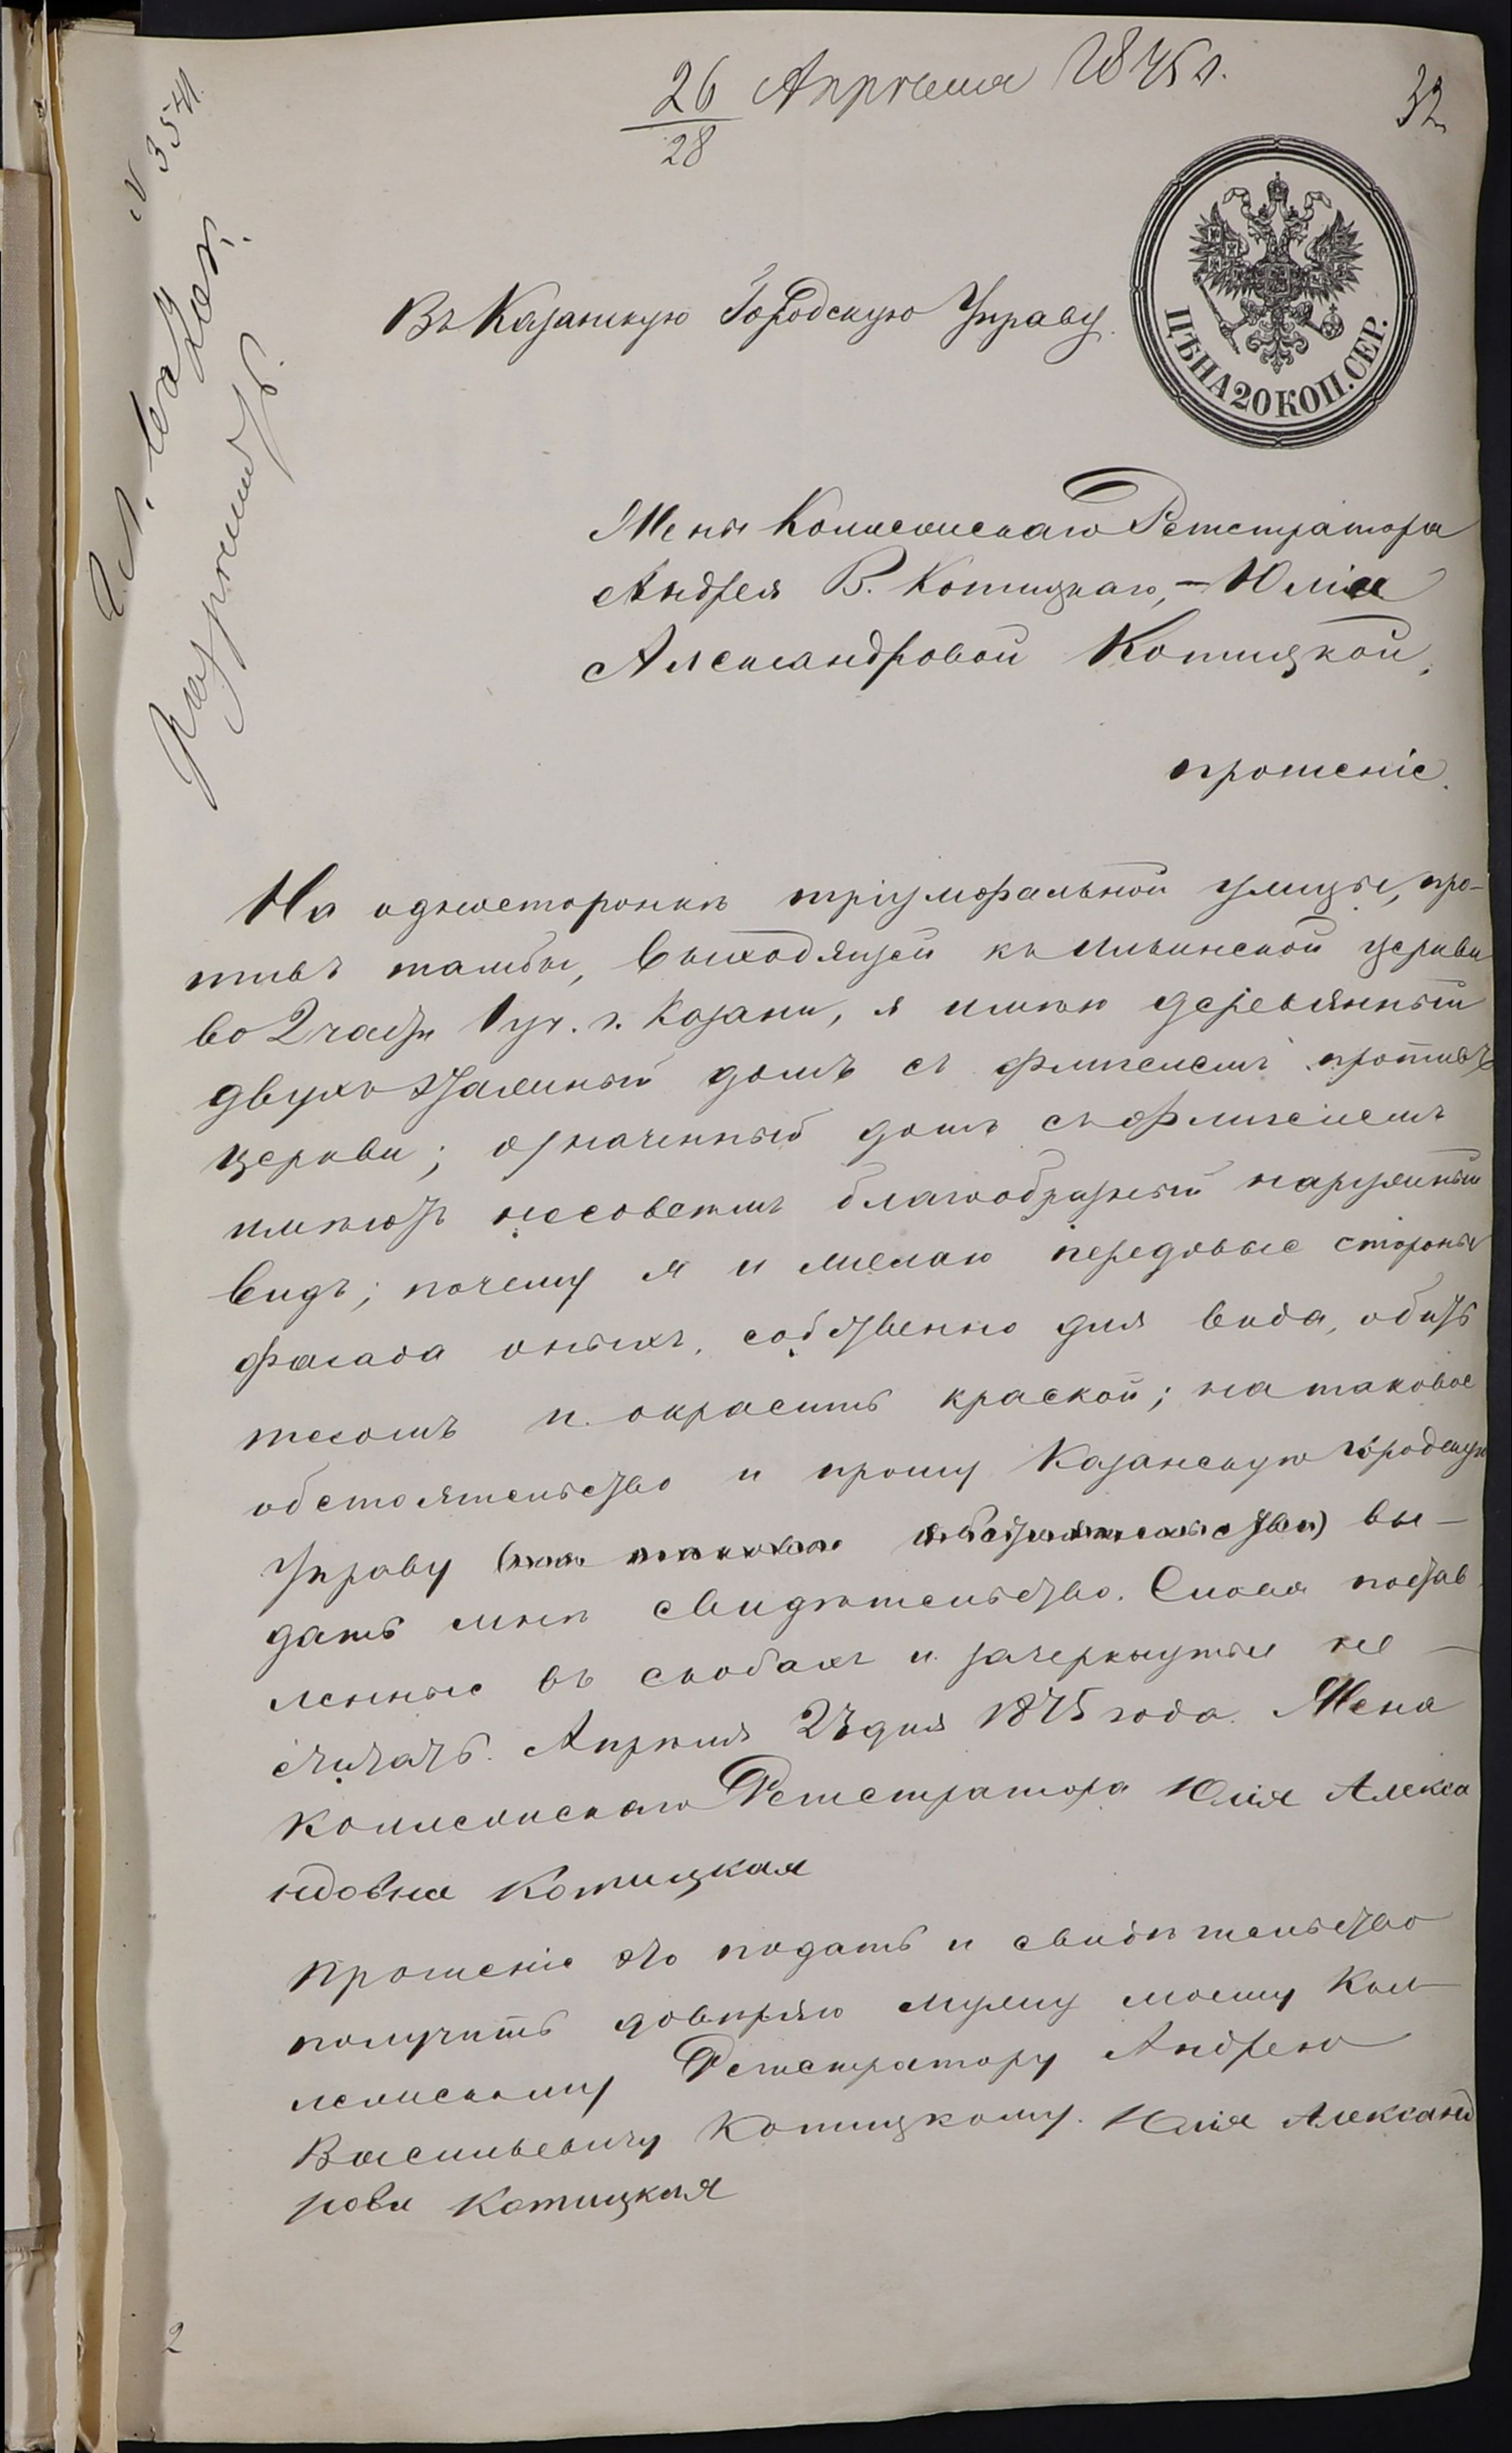 26 Апрѣля 1875 г.
28
32
N 3541.
Разрѣшить.
Въ Казанскую Городскую Управу.
ЦѢНА 20 КОП. СЕР.
Жены Коллежскаго Регистратора
Андрея В. Котицкаго, – Юліи
Александровой Котицкой,
прошеніе.
На односторонкѣ тріумфальной улицы, про-
тивъ дамбы, выходящей къ Ильинской церкви
во 2 части 1 уч. г. Казани, я имѣю деревянный
двухъ этажный домъ съ флигелемъ противъ
церкви; означенный домъ съ флигелемъ
имѣютъ несовсемъ благообразный наружный
видъ; почему я и желаю передовые стороны
фасада оныхъ, собственно для вида, обить
тесомъ и окрасить краской; на таковое
обстоятельство и прошу Казанскую Городскую
Управу (на таковое обстоятельство) вы-
дать мнѣ свидѣтельство. Слова постав
ленные въ скобахъ и зачеркнутые не –
считать. Апрѣля 23 дня 1875 года. Жена
Коллежскаго Регистратора Юлія Алекса
ндовна Котицкая
Прошеніе это подать и свидѣтельство
получить довѣряю мужу моему Кол-
лежскому Регистратору Андрею
Васильевичу Котицкому. Юлія Александ
рова Котицкая
2